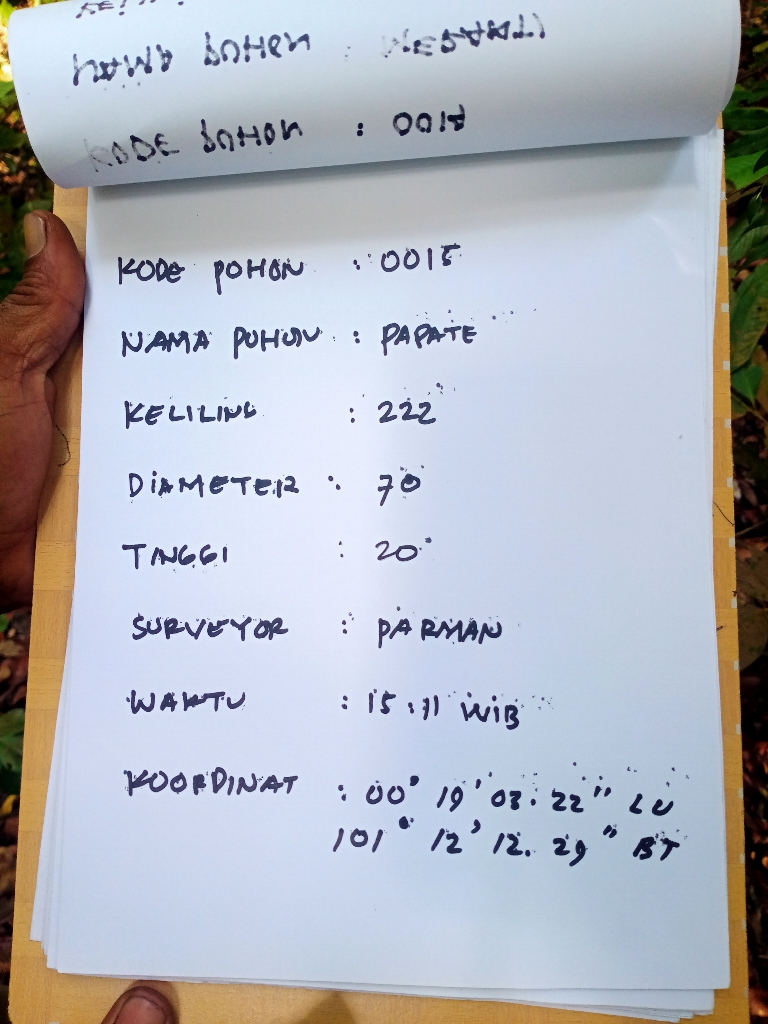 KODE POHON : 0015
NAMA POHON : PAPATE
KELILING : 222
DIAMETER : 70
TINGGI : 20
SURVEYOR : PARMAN
WAKTU : 15:11 WIB
KOORDINAT : 00° 19' 03.22" LU
101° 12' 12.29" BT